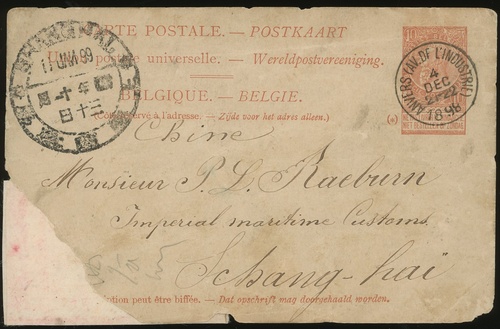 CARTE POSTALE. — POSTKAART
postale universelle. — Wereldpostvereeniging.
BELGIQUE. — BELGIË.
(Côté réservé à l'adresse. — Zijde voor het adres alleen.)
SHANGHAI
17 JAN 99
ANVERS (AV. DE L'INDUSTRIE)
4
DEC
21-22
1898
10
NIET BESTELLEN OP ZONDAG
Chine
Monsieur P. L. Raeburn
Imperial maritime Customs
Schang-haï
tion peut être biffée. — Dat opschrift mag doorschaald worden.